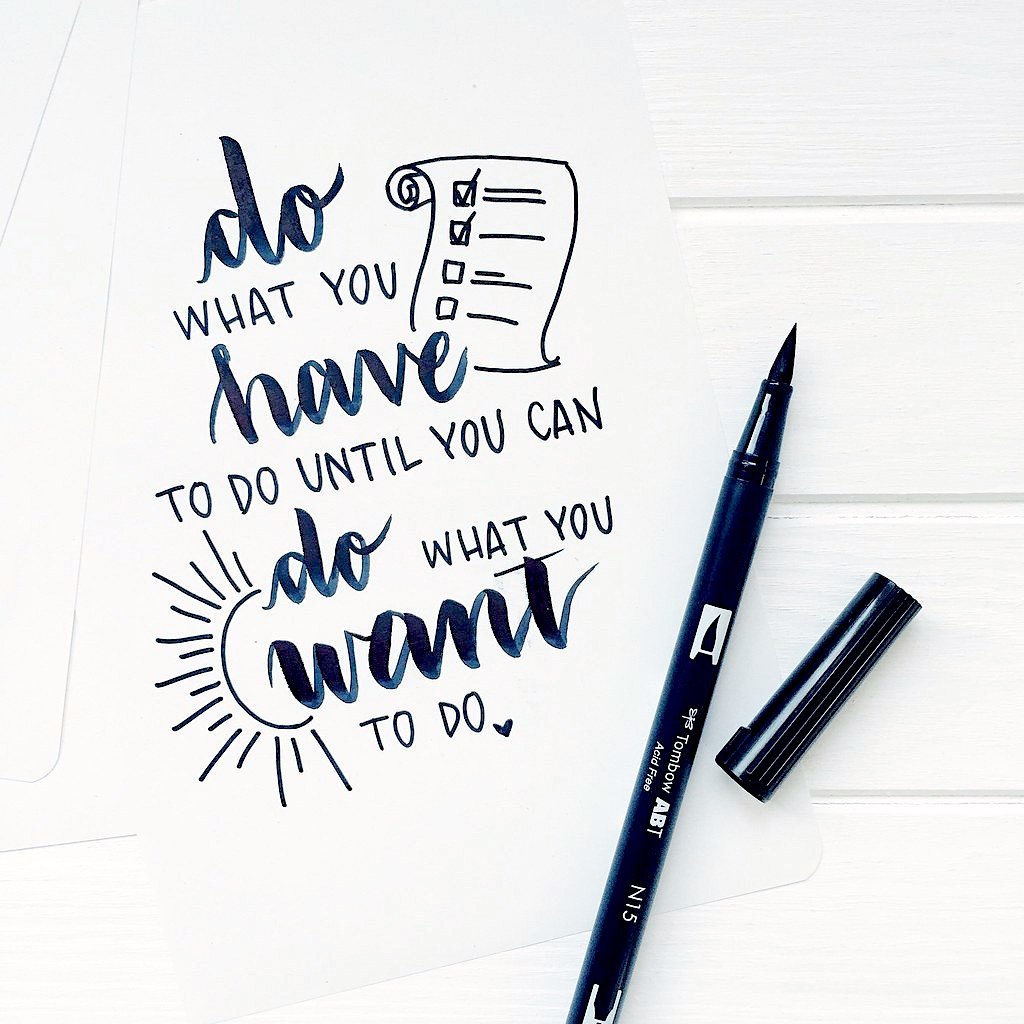 do
WHAT YOU
have
TO DO UNTIL YOU CAN
do WHAT YOU
want
TO DO
Tombow ABT N15
Acid Free